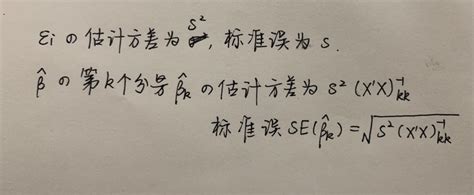 εi の 估计方差为 s², 标准误为 s.
β̂ の 第k个分量 β̂k の估计方差为 s²(X'X)⁻¹kk
标准误 SE(β̂k) = √s²(X'X)⁻¹kk